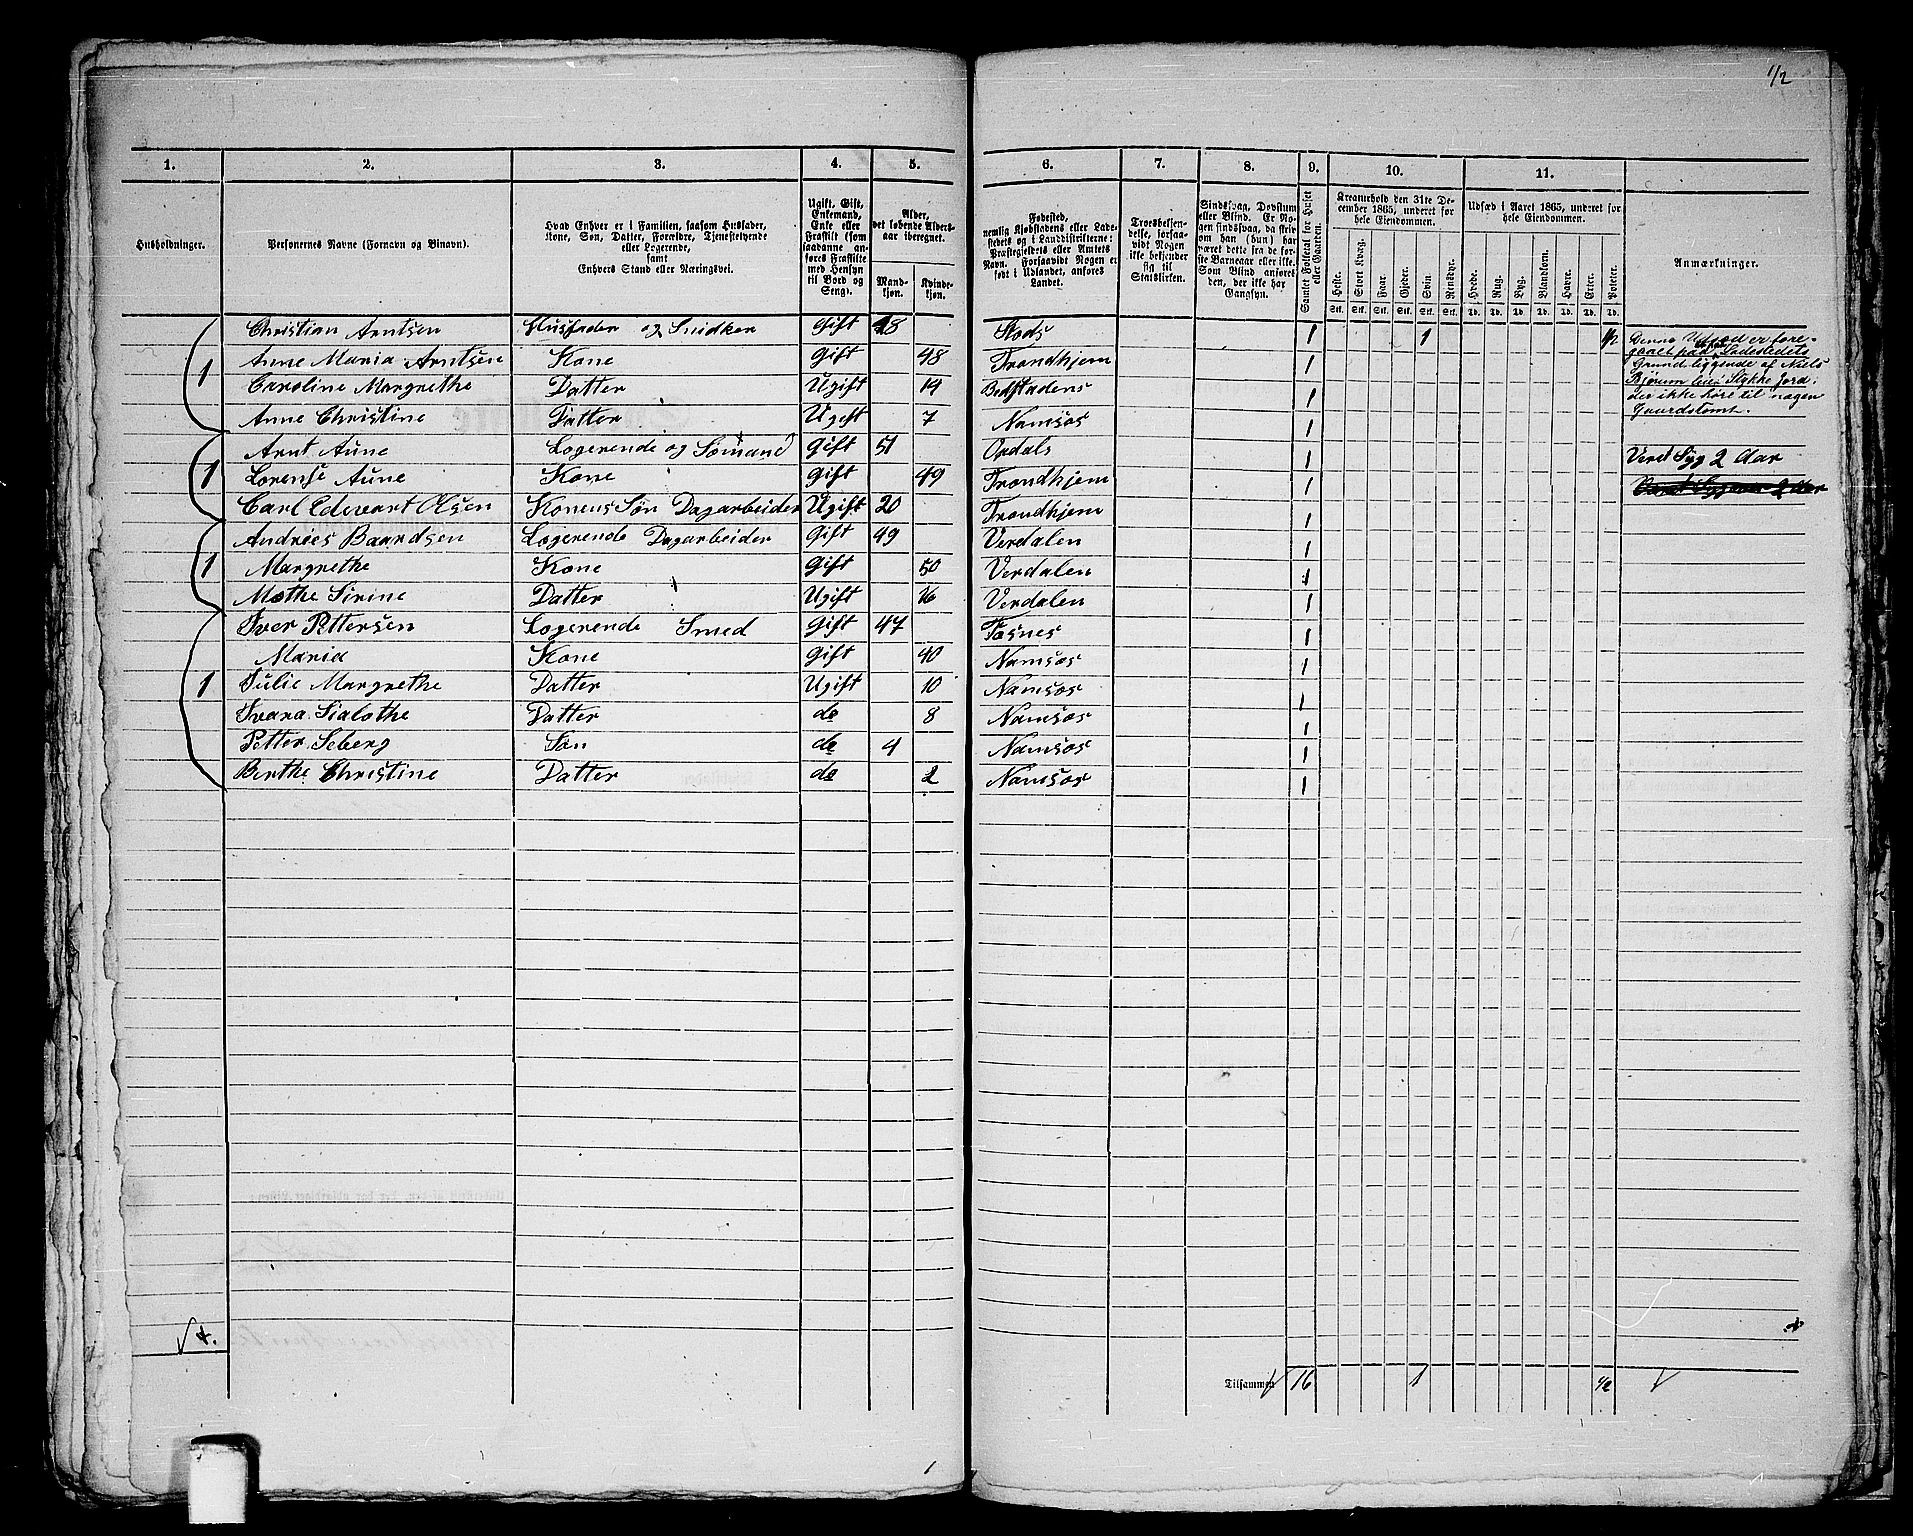 1/2
1. 2. 3. 4. 5. 6. 7. 8. 9. 10. 11.
Husholdninger.
Personernes Navne (Fornavn og Binavn).
Hvad Enhver er i Familien, saasom Husfader,
Kone, Søn, Datter, Forældre, Tjenestetyende
eller Logerende,
samt
Enhvers Stand eller Næringsvei.
Ugift, Gift,
Enkemand,
Enke eller
Fraskilt (som
saadanne an-
føres Fraskilte
med Hensyn
til Bord og
Seng).
Alder,
det løbende Alders-
aar iberegnet.
Mand-
kjøn.
Kvinde-
kjøn.
Fødested,
nemlig Kjøbstadens eller Lade-
stedets og i Landdistrikterne:
Præstegjeldets eller Amtets
Navn. Forsaavidt Nogen er
født i Udlandet, anføres
Landet.
Troesbekjen-
delse, forsaa-
vidt Nogen
ikke bekjender
sig til
Statskirken.
Sindssvag, Døvstum
eller Blind. Er No-
gen sindssvag, da skri-
ves om han (hun) har
været dette fra de før-
ste Barneaar eller ikke.
Som Blind anføres
den, der ikke har
Gangsyn.
Samlet Folketal for Huset
eller Gaarden.
Kreaturhold den 31te De-
cember 1865, underet for
hele Eiendommen.
Heste. Stort Kvæg. Faar. Gjeder. Svin. Rensdyr.
Stk. Stk. Stk. Stk. Stk. Stk.
Udsæd i Aaret 1865, underet for
hele Eiendommen.
Hvede. Rug. Byg. Blandkorn. Havre. Erter. Poteter.
Td. Td. Td. Td. Td. Td. Td.
Anmærkninger.
Christian Arntsen Husfader og Snidker Gift 48 Stods 1 1 1/2
1 Anne Maria Arntsen Kone Gift 48 Trondhjem 1
Caroline Margrethe Datter Ugift 19 Bedstadens 1
Anne Christine Datter Ugift 7 Namsos 1
Denne Udsæd er fore-
gaaet paa Ladestedets
Grund liggende af Niels
Stykke Jord
der ikke höre til nogen
Gaardstomt.
Arnt Aune Logerende og Sømand Gift 51 1 Veret Syg 2 Aar
1 Lorense Aune Kone Gift 49 Trondhjem 1
Carl Edevart Olsen Konens Søn Dagarbeider Ugift 20 Trondhjem 1
Andrias Baardsen Logerende Dagarbeider Gift 49 Verdalen 1
1 Margrethe Kone Gift 50 Verdalen 1
Mathe Sirine Datter Ugift 16 Verdalen 1
Iver Pettersen Logerende Smed Gift 47 Fosnes 1
Maria Kone Gift 40 Namsos 1
1 Julie Margrethe Datter Ugift 10 Namsos 1
Ivara Sialothe Datter do 8 Namsos 1
Petter Seberg Søn do 4 Namsos 1
Berthe Christine Datter do 2 Namsos 1
4.
Tilsammen 16 1 1/2